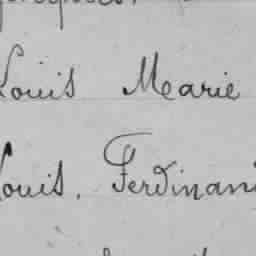 Louis Marie
Louis. Ferdinand